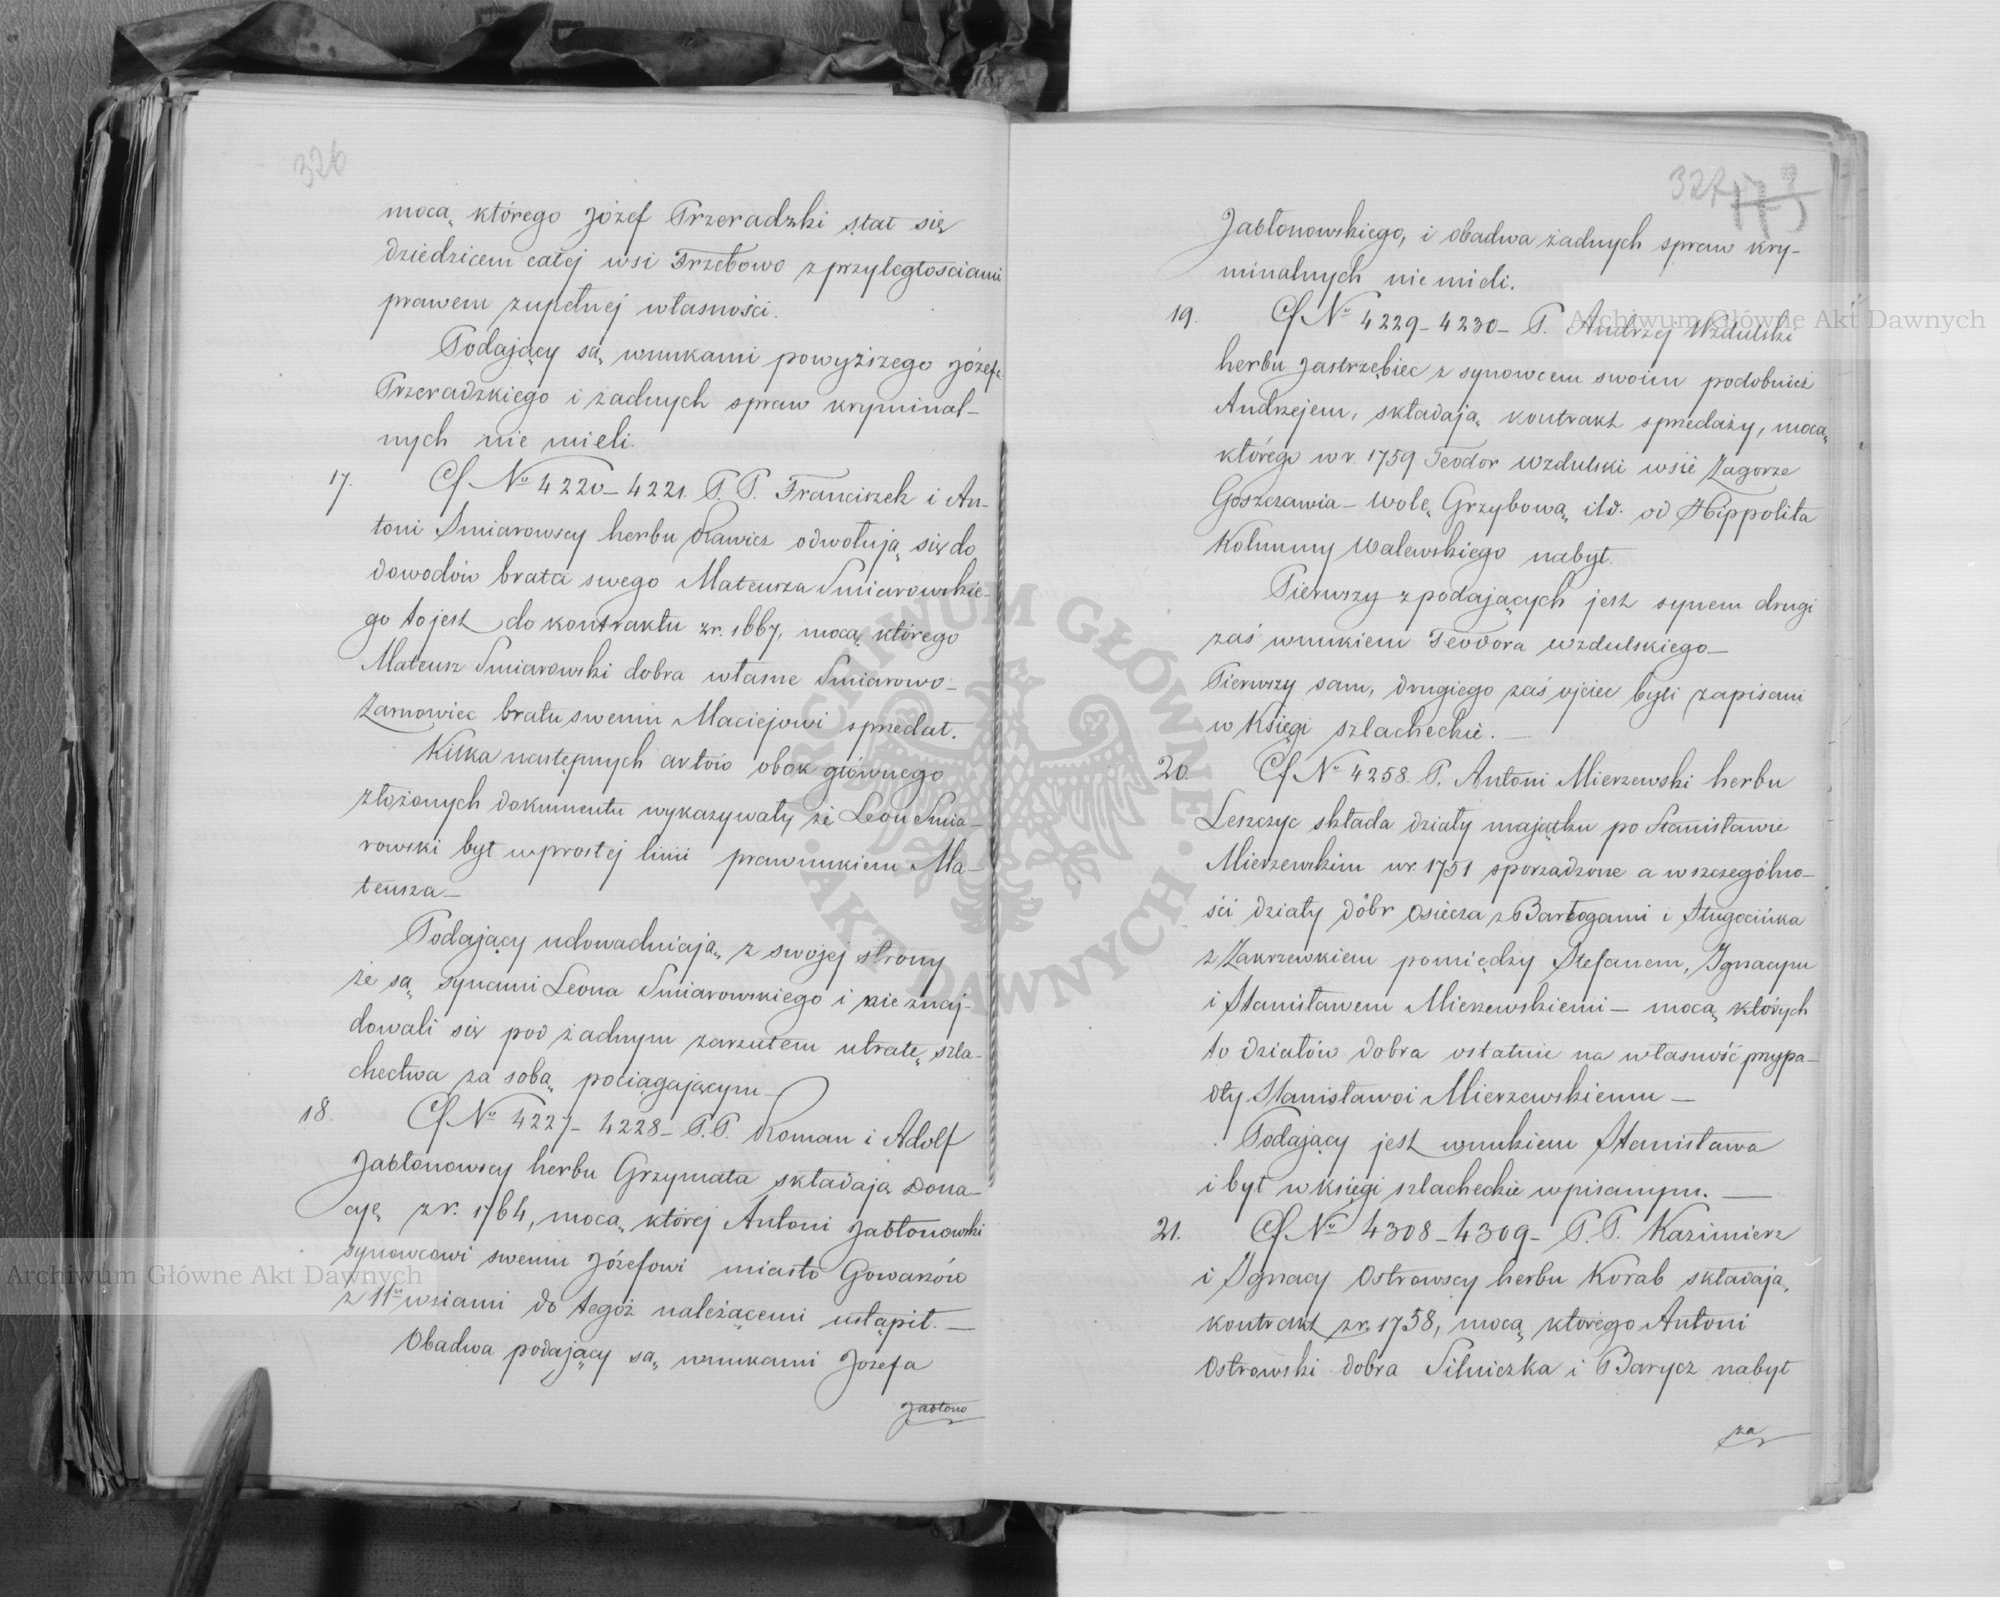 326
mocą którego Józef Przeradzki stał się
dziedzicem całej wsi Trzebowo z przyległościami
prawem zupełnej własności.
Podający są wnukami powyższego Józefa
Przeradzkiego i żadnych spraw kryminal-
nych nie mieli.
17. Cf No 4220-4221. P. P. Franciszek i An-
toni Śmiarowscy herbu Rawicz odwołują się do
dowodów brata swego Mateusza Smiarowskie-
go to jest do kontraktu z r. 1667, mocą którego
Mateusz Smiarowski dobra własne Smiarowo-
Żarnowiec bratu swemu Maciejowi sprzedał.
Kilka następnych aktów obok głównego
złożonych dokumentu wykazywały że Leon Smia-
rowski był w prostej linii prawnukiem Ma-
teusza -
Podający udowadniają z swojej strony
że są synami Leona Smiarowskiego i nie znaj-
dowali się pod żadnym zarzutem utratę szla-
chectwa za sobą pociągającym -
18. Cf No 4227- 4228- P. P. Roman i Adolf
Jabłonowscy herbu Grzymała składają dona-
cyę z r. 1764, mocą której Antoni Jabłonowski
synowcowi swemu Józefowi miasto Goworów
z 11u wsiami do tegoż należącemi ustąpił. -
Obadwa podający są wnukami Józefa
Jabłono
327 173
Jabłonowskiego, i obadwa żadnych spraw kry-
minalnych nie mieli.
19. Cf No 4229-4230- P. Andrzej Wzdulski
herbu Jastrzębiec z synowcem swoim podobnież
Andrzejem, składają kontrakt sprzedaży, mocą
którego w r. 1759 Teodor Wzdulski wsie Zagorze
Goszczawia - Wolę Grzybową itd. od Hippolita
Kolumny Walewskiego nabył.
Pierwszy z podających jest synem drugi
zaś wnukiem Teodora Wzdulskiego -
Pierwszy sam, drugiego zaś ojciec byli zapisani
w Księgi szlacheckie. -
20. Cf No 4258. P. Antoni Mierzewski herbu
Leszczyc składa działy majątku po Stanisławie
Mierzewskim w r. 1751 sporządzone a w szczególno-
ści działy dóbr Osiecza z Bartogami i Sługocińka
z Zakrzewkiem pomiędzy Stefanem, Ignacym
i Stanisławem Mierzewskiemi - mocą których
to działów dobra ostatnie na własność przypa-
dły Stanisławoi Mierzewskiemu -
Podający jest wnukiem Stanisława
i był w księgi szlacheckie wpisanym. -
21. Cf No 4308-4309- P. P. Kazimierz
i Ignacy Ostrowscy herbu Korab składają
kontrakt z r. 1758, mocą którego Antoni
Ostrowski dobra Silniczka i Barycz nabył
za
Archiwum Główne Akt Dawnych
Archiwum Główne Akt Dawnych
ARCHIWUM GŁÓWNE · AKT DAWNYCH ·